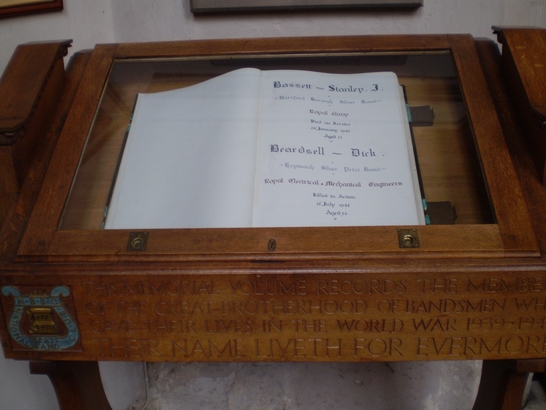 Bassett — Stanley. J.
Silver Band
Royal Navy
Killed in Action
January
Aged
Beardsell — Dick.
Silver Prize Band
Royal Electrical & Mechanical Engineers
Killed in Action
July
Aged
MEMORIAL VOLUME RECORDS THE MEMBE
GREAT BROTHERHOOD OF BANDSMEN WH
THEIR LIVES IN THE WORLD WAR 1939-194
THEIR NAME LIVETH FOR EVERMORE